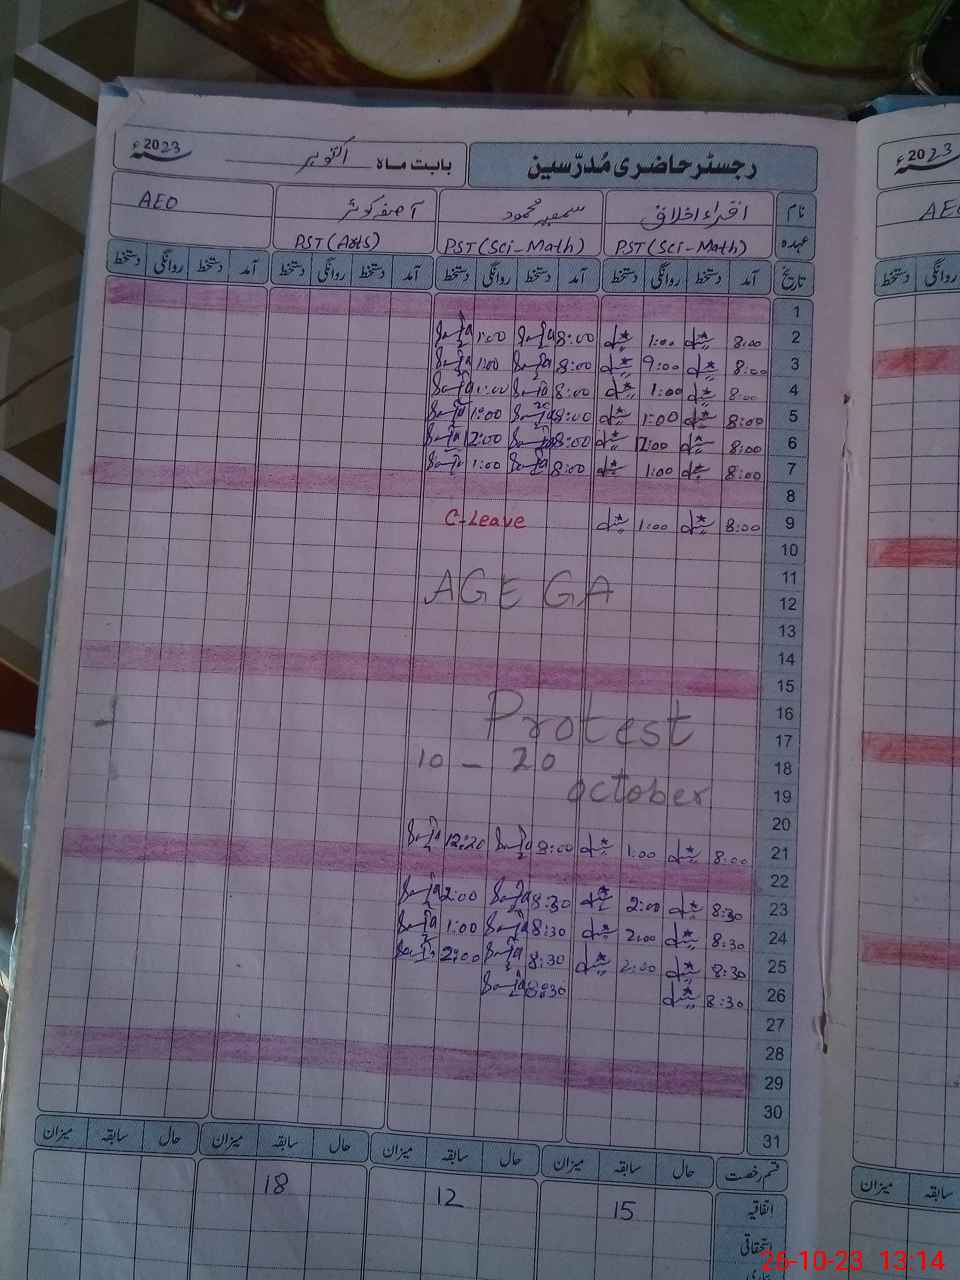 رجسٹر حاضری مُدرّسین بابت ماہ اکتوبر 2023
نام اقراء اخلاق سمعیہ محمود آصفہ کوثر AEO
عہدہ PST (Sci-Math) PST (Sci-Math) PST (Arts)
تاریخ آمد دستخط روانگی دستخط آمد دستخط روانگی دستخط آمد دستخط روانگی دستخط آمد دستخط روانگی دستخط
1
2 8:00 1:00 8:00 1:00
3 8:00 9:00 8:00 1:00
4 8:00 1:00 8:00 1:00
5 8:00 1:00 8:00 1:00
6 8:00 12:00 8:00 12:00
7 8:00 1:00 8:00 1:00
8
9 8:00 1:00 C-Leave
10
11
AGEGA
12
13
14
15
16
Protest
17
18
10 - 20
19
october
20
21 8:00 1:00 8:00 12:20
22
23 8:30 2:00 8:30 2:00
24 8:30 2:00 8:30 1:00
25 8:30 2:00 8:30 2:00
26 8:30 8:30
27
28
29
30
31
قسم رخصت حال سابقہ میزان حال سابقہ میزان حال سابقہ میزان حال سابقہ میزان
اتفاقیہ 15 12 18
استحقاقی
2023
AEO
روانگی دستخط
سابقہ میزان
26-10-23 13:14